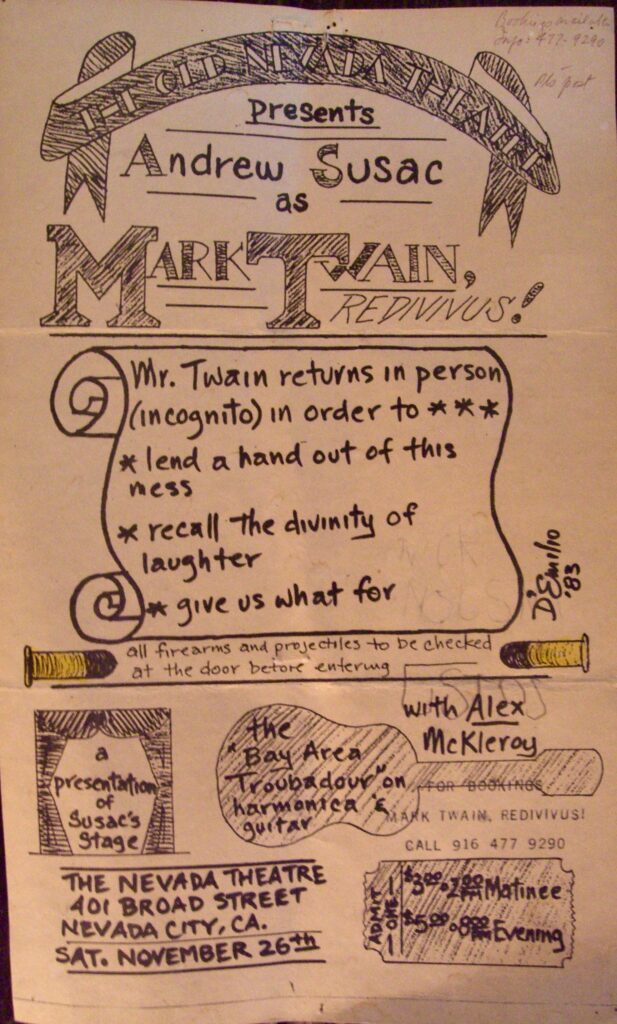 Bookings available
Info: 477-9290
Also post
THE OLD NEVADA THEATRE
Presents
Andrew Susac
as
MARK TWAIN,
REDIVIVUS!
Mr. Twain returns in person
(incognito) in order to ***
* lend a hand out of this
mess
* recall the divinity of
laughter
* give us what for
D'Emilio
'83
all firearms and projectiles to be checked
at the door before entering
with Alex
McKleroy
the
"Bay Area
Troubadour" on
harmonica &
guitar
a
presentation
of
Susac's
Stage
FOR BOOKINGS
MARK TWAIN, REDIVIVUS!
CALL 916 477 9290
THE NEVADA THEATRE
401 BROAD STREET
NEVADA CITY, CA.
SAT. NOVEMBER 26th
ADMIT
ONE
$3.00 · 2:00 PM Matinee
$5.00 · 8:00 PM Evening